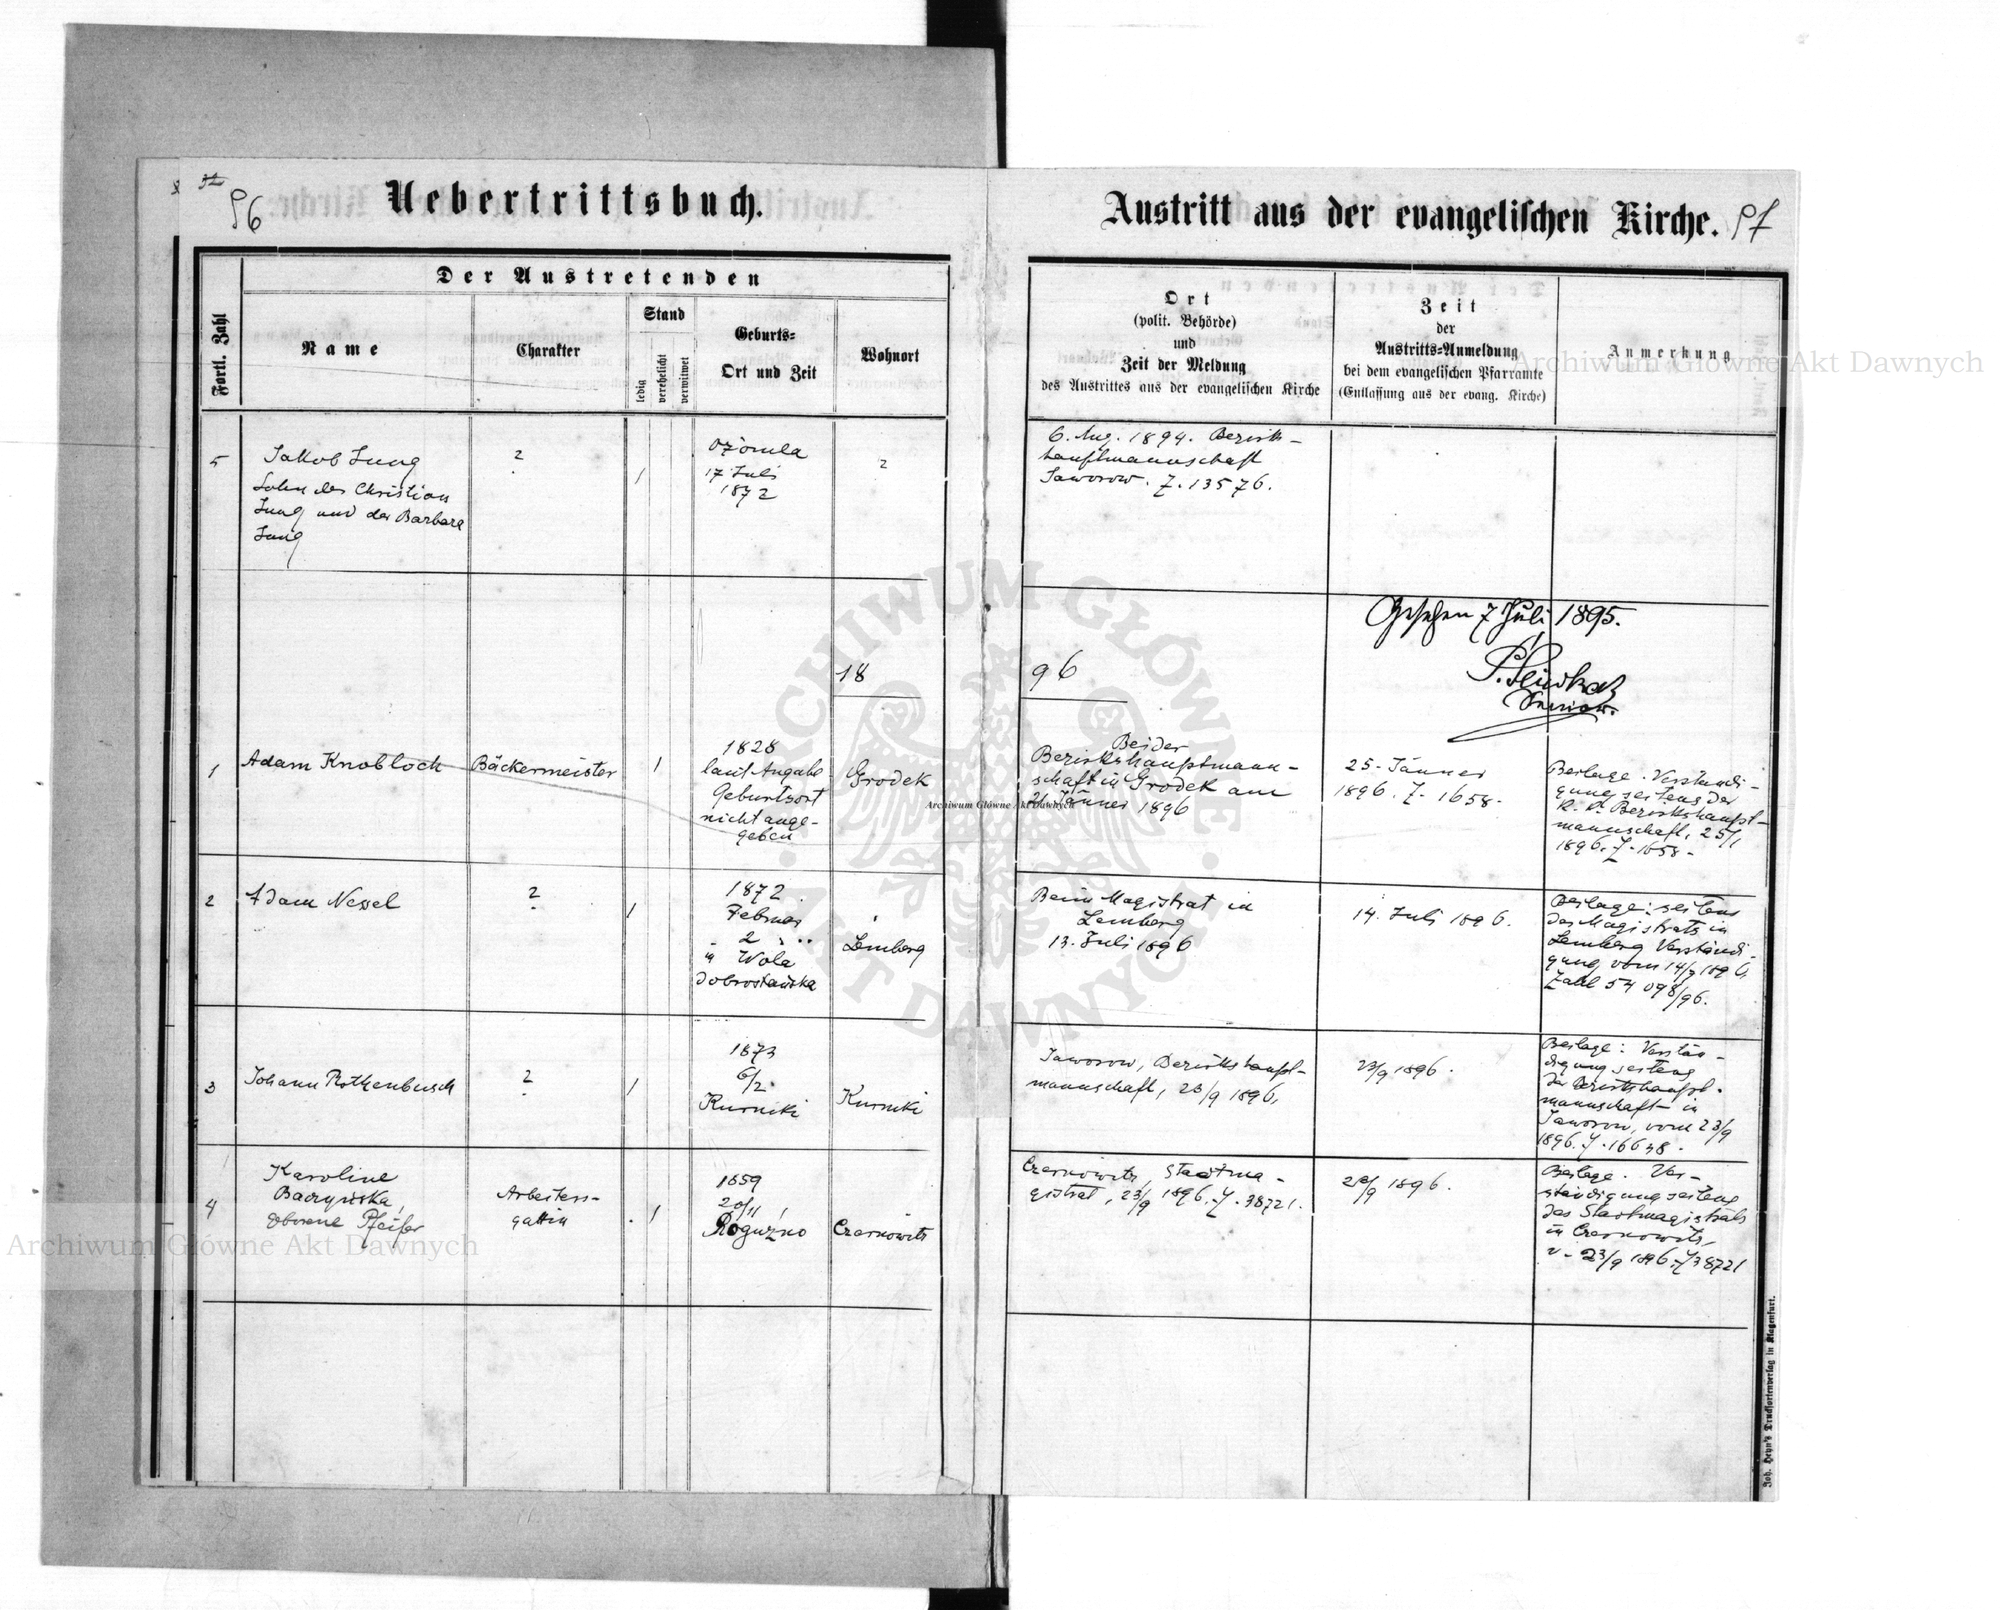 96
Uebertrittsbuch.
Austritt aus der evangelischen Kirche.
97
Fortl. Zahl
Der Austretenden
Name
Charakter
Stand
ledig
verehelicht
verwitwet
Geburts-
Ort und Zeit
Wohnort
Ort
(polit. Behörde)
und
Zeit der Meldung
des Austrittes aus der evangelischen Kirche
Zeit
der
Austritts-Anmeldung
bei dem evangelischen Pfarramte
(Entlassung aus der evang. Kirche)
Anmerkung
5
Jakob Jung
Sohn des Christian
Jung und der Barbara
Jung
?
1
Ożomla
17 Juli
1872
?
6. Aug. 1894. Bezirks-
hauptmannschaft
Jaworow. Z. 13576.
Gesehen 7 Juli 1895.
Senior.
18
96
1
Adam Knobloch
Bäckermeister
1
1828
laut Angabe
Geburtsort
nicht ange-
geben
Grodek
Bei der
Bezirkshauptmann-
schaft in Grodek am
21 Jänner 1896
25. Jänner
1896. Z. 1658.
Beilage. Verständi-
gung seitens der
k. k. Bezirkshaupt-
mannschaft, 25/1
1896. Z. 1658.
2
Adam Nessel
?
1
1872
Februar
2
in Wola
Dobrostańska
Lemberg
Beim Magistrat in
Lemberg
13. Juli 1896
14. Juli 1896.
Beilage: seitens
des Magistrats in
Lemberg Verständi-
gung vom 14/7 1896
Zahl 54 098/96.
3
Johann Rothenbusch
?
1
1873
6/2.
Kurniki
Kurniki
Jaworow, Bezirkshaupt-
mannschaft, 23/9 1896.
23/9 1896.
Beilage: Verstän-
digung seitens
der Bezirkshaupt-
mannschaft in
Jaworow, vom 23/9
1896. Z. 16638.
4
Karoline
Baczyńska,
geborene Pfeifer
Arbeiters-
gattin
1
1859
20/11
Roguźno
Czernowitz
Czernowitz, Stadtma-
gistrat, 23/9 1896. Z. 38721.
1896.
Beilage. Ver-
ständigung seitens
des Stadtmagistrats
in Czernowitz,
v. 23/9 1896. Z 38721
Joh. Heyn's Drucksortenverlag in Klagenfurt.
Archiwum Główne Akt Dawnych
Archiwum Główne Akt Dawnych
Archiwum Główne Akt Dawnych
ARCHIWUM GŁÓWNE
AKT DAWNYCH